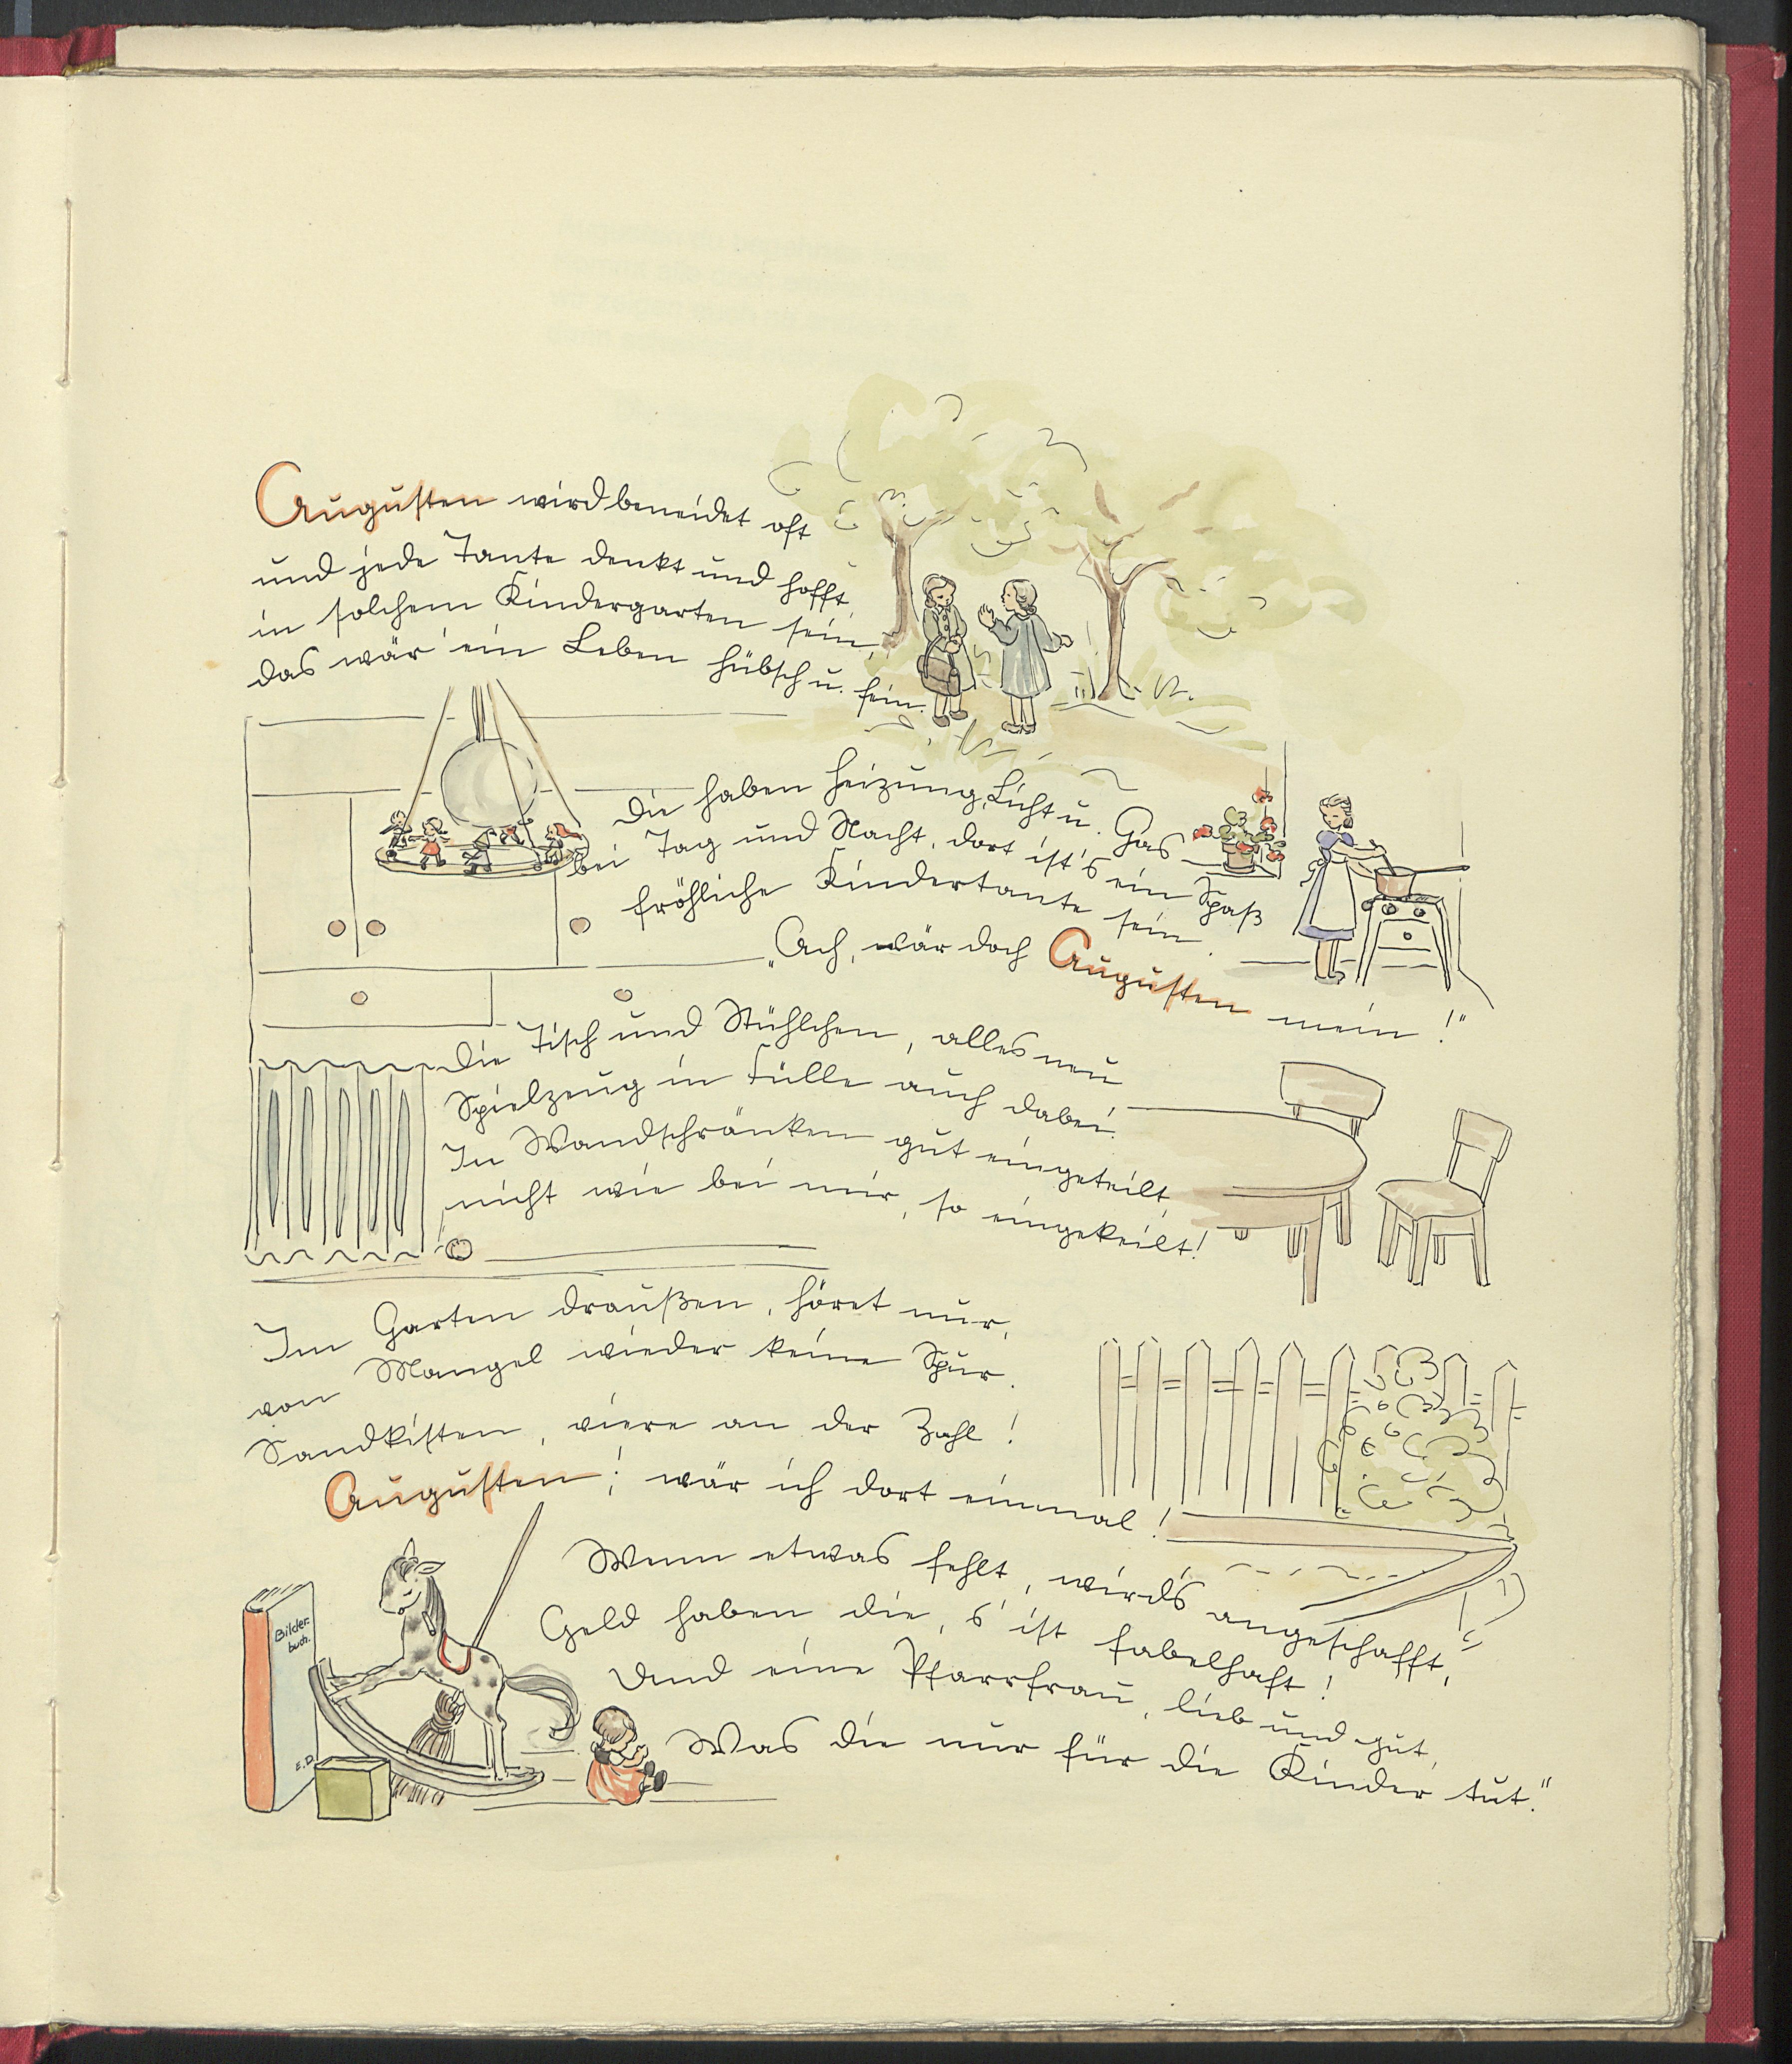 Augusten wird beneidet oft
und jede Tante denkt und hofft,
in solchem Kindergarten sein,
das wär' ein Leben hübsch u. fein.
Die haben Heizung, Licht u. Gas
bei Tag und Nacht, dort ist's ein Spaß
fröhliche Kindertante sein.
„Ach, wär doch Augusten mein!"
Die Tisch und Stühlchen, alles neu
Spielzeug in Fülle auch dabei.
In Wandschränken gut eingeteilt,
nicht wie bei mir, so eingekeilt!
Im Garten draußen, höret nur,
von Mangel wieder keine Spur.
Sandkisten, viere an der Zahl!
Augusten; wär ich dort einmal!
Wenn etwas fehlt, wird's angeschafft,
Geld haben die, s' ist fabelhaft!
Und eine Pfarrfrau, lieb und gut,
Was die nur für die Kinder tut."
Bilder-
buch.
E.D.